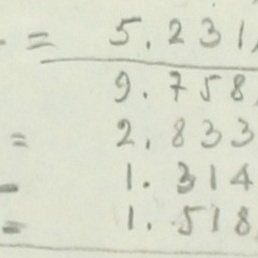 - = 5.231,
9.758,
= 2.833
- 1.314
= 1.518,